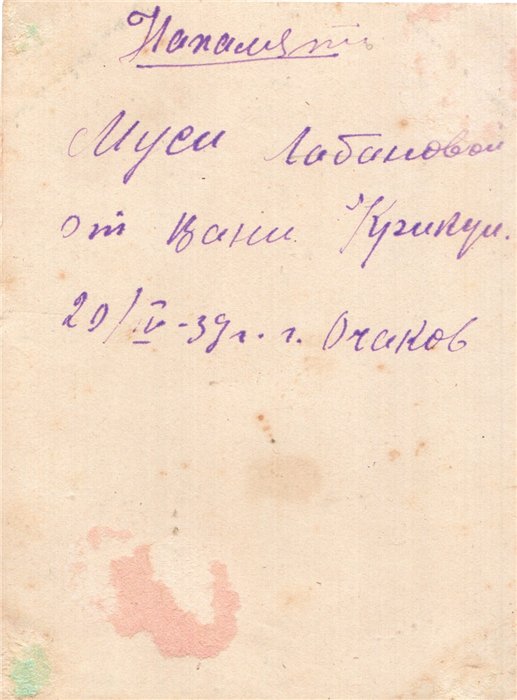 Напамять
Муси Лабановой
от Вани Крикун.
20/IV-39 г. г. Очаков